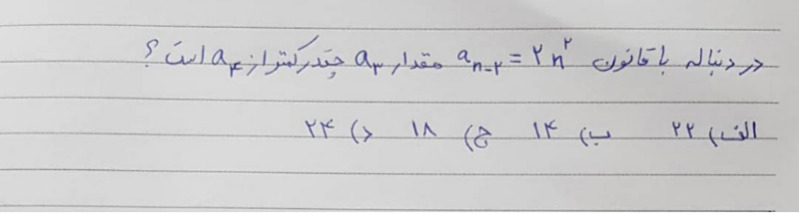 در دنباله با قانون a_{n-۲} = ۲n^۲ مقدار a_۳ چقدر کمتر از a_۴ است؟
الف) ۲۲ ب) ۱۴ ج) ۱۸ د) ۲۴